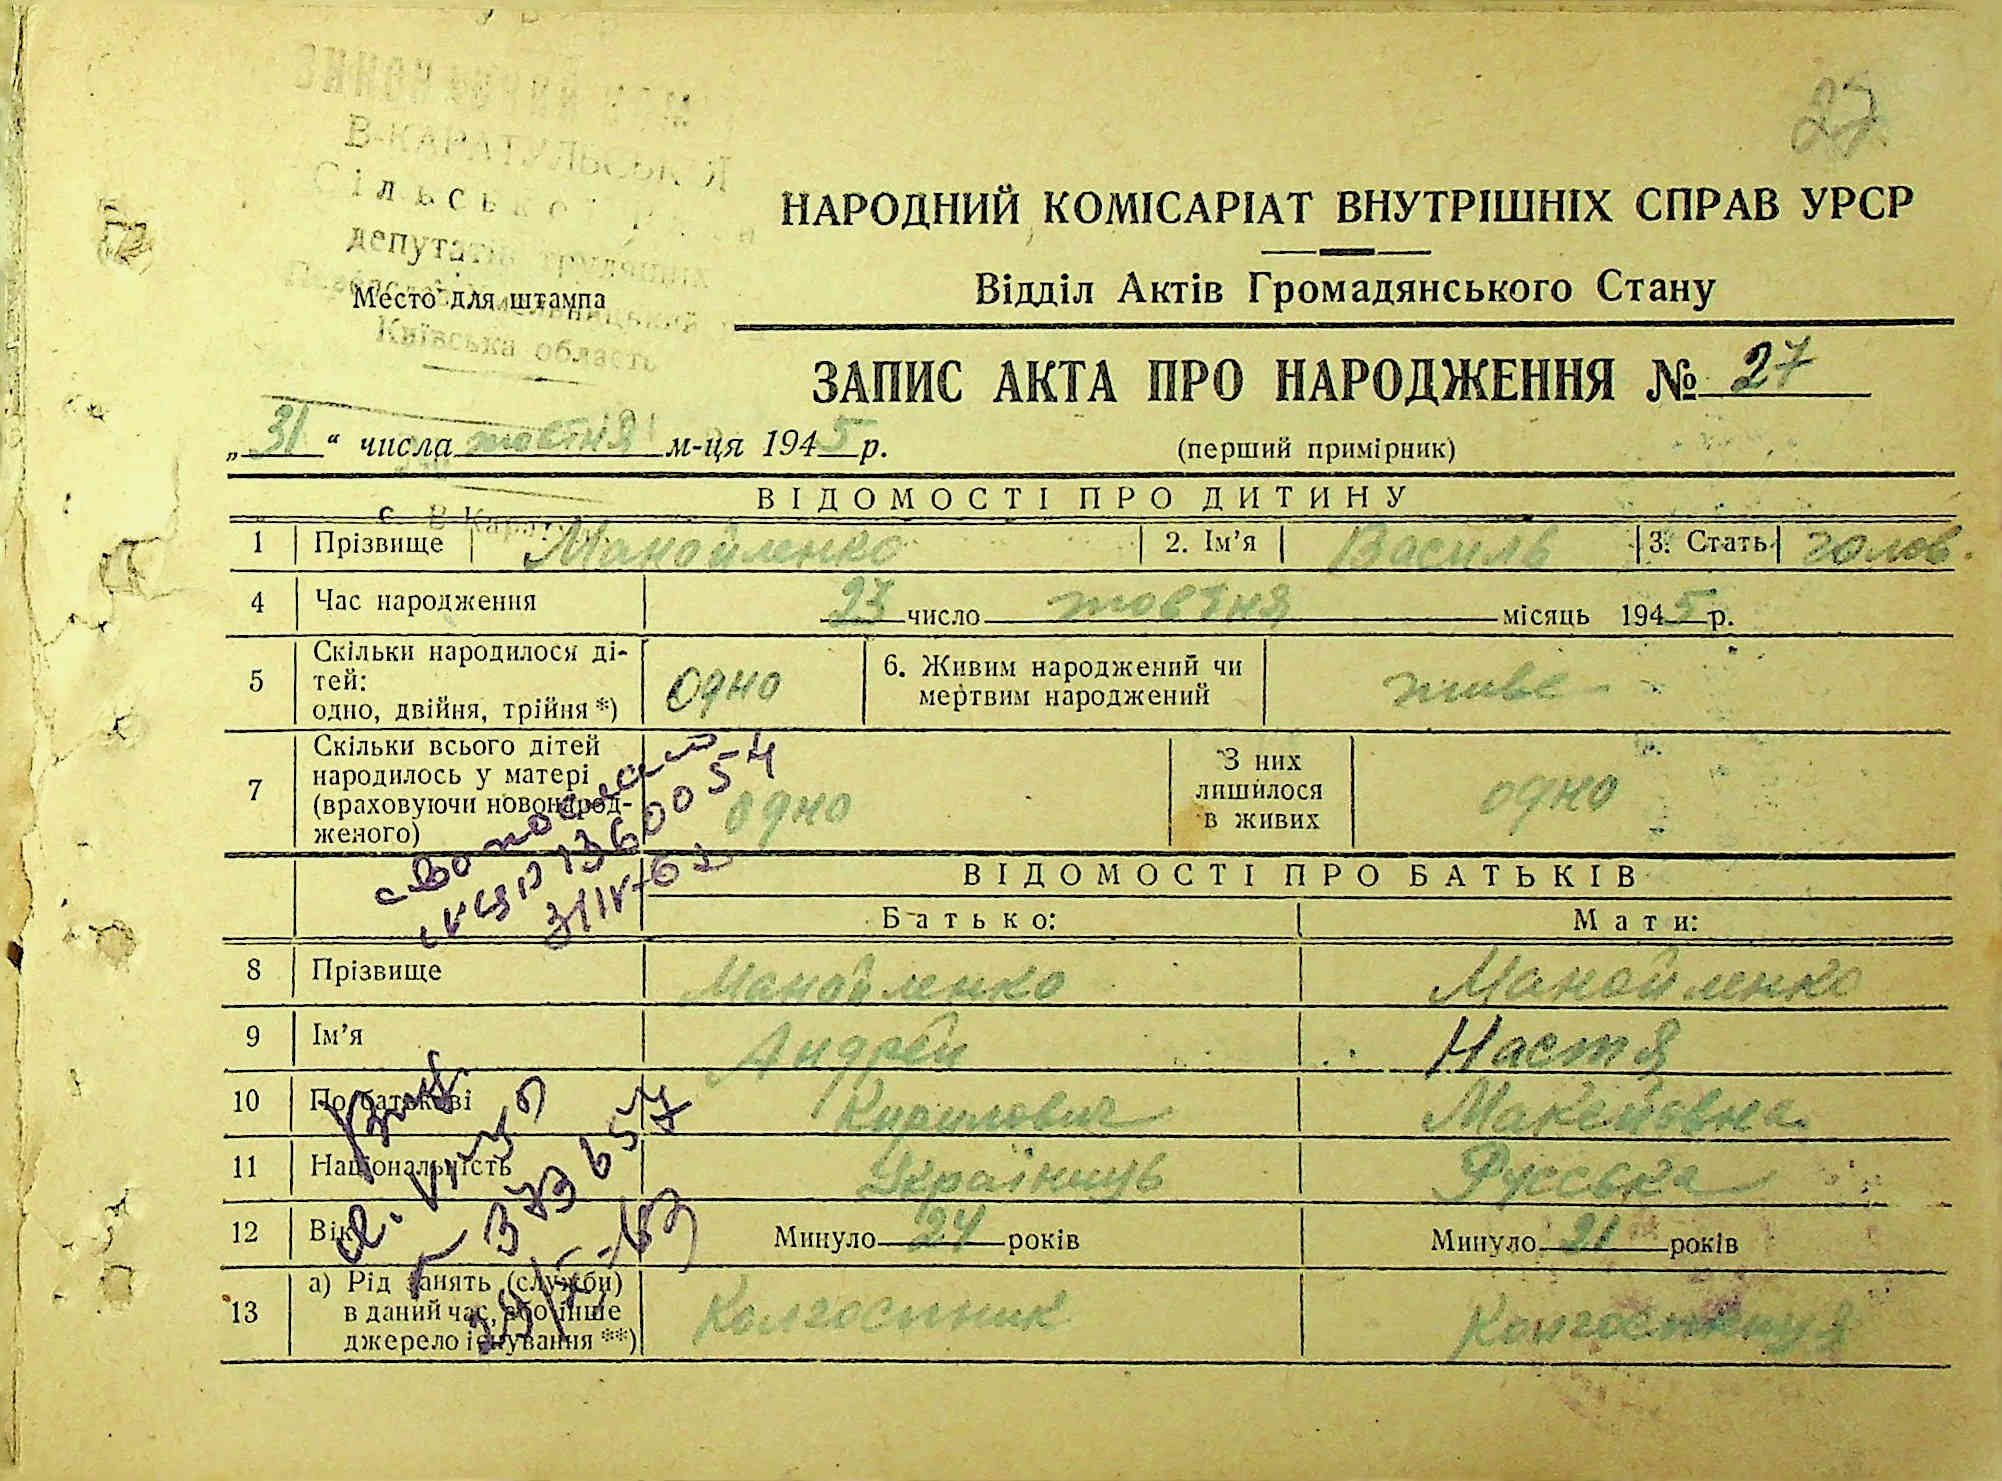 27
В-КАРАТУЛЬСЬКАЯ
Сільської
депутатів трудящих
Место для штампа
Київська область
НАРОДНИЙ КОМІСАРІАТ ВНУТРІШНІХ СПРАВ УРСР
Відділ Актів Громадянського Стану
ЗАПИС АКТА ПРО НАРОДЖЕННЯ № 27
„31" числа жовтня м-ця 1945 р. (перший примірник)
ВІДОМОСТІ ПРО ДИТИНУ
с. В-Карат
1 Прізвище Манойленко 2. Ім'я Василь 3. Стать чолов.
4 Час народження 23 число жовтня місяць 1945 р.
5 Скільки народилося ді-
тей:
одно, двійня, трійня *) одно 6. Живим народжений чи
мертвим народжений живе
7 Скільки всього дітей
народилось у матері
(враховуючи новонарод-
женого) одно З них
лишилося
в живих одно
1360054
ВІДОМОСТІ ПРО БАТЬКІВ
Батько: Мати:
8 Прізвище Манойленко Манойленко
9 Ім'я Андрей Настя
10 По батькові Кирилович Макеївна
11 Національність Українець Русська
12 Вік Минуло 24 років Минуло 21 років
373657
13 а) Рід занять (служби)
в даний час, або інше
джерело існування **) Колгоспник Колгоспниця